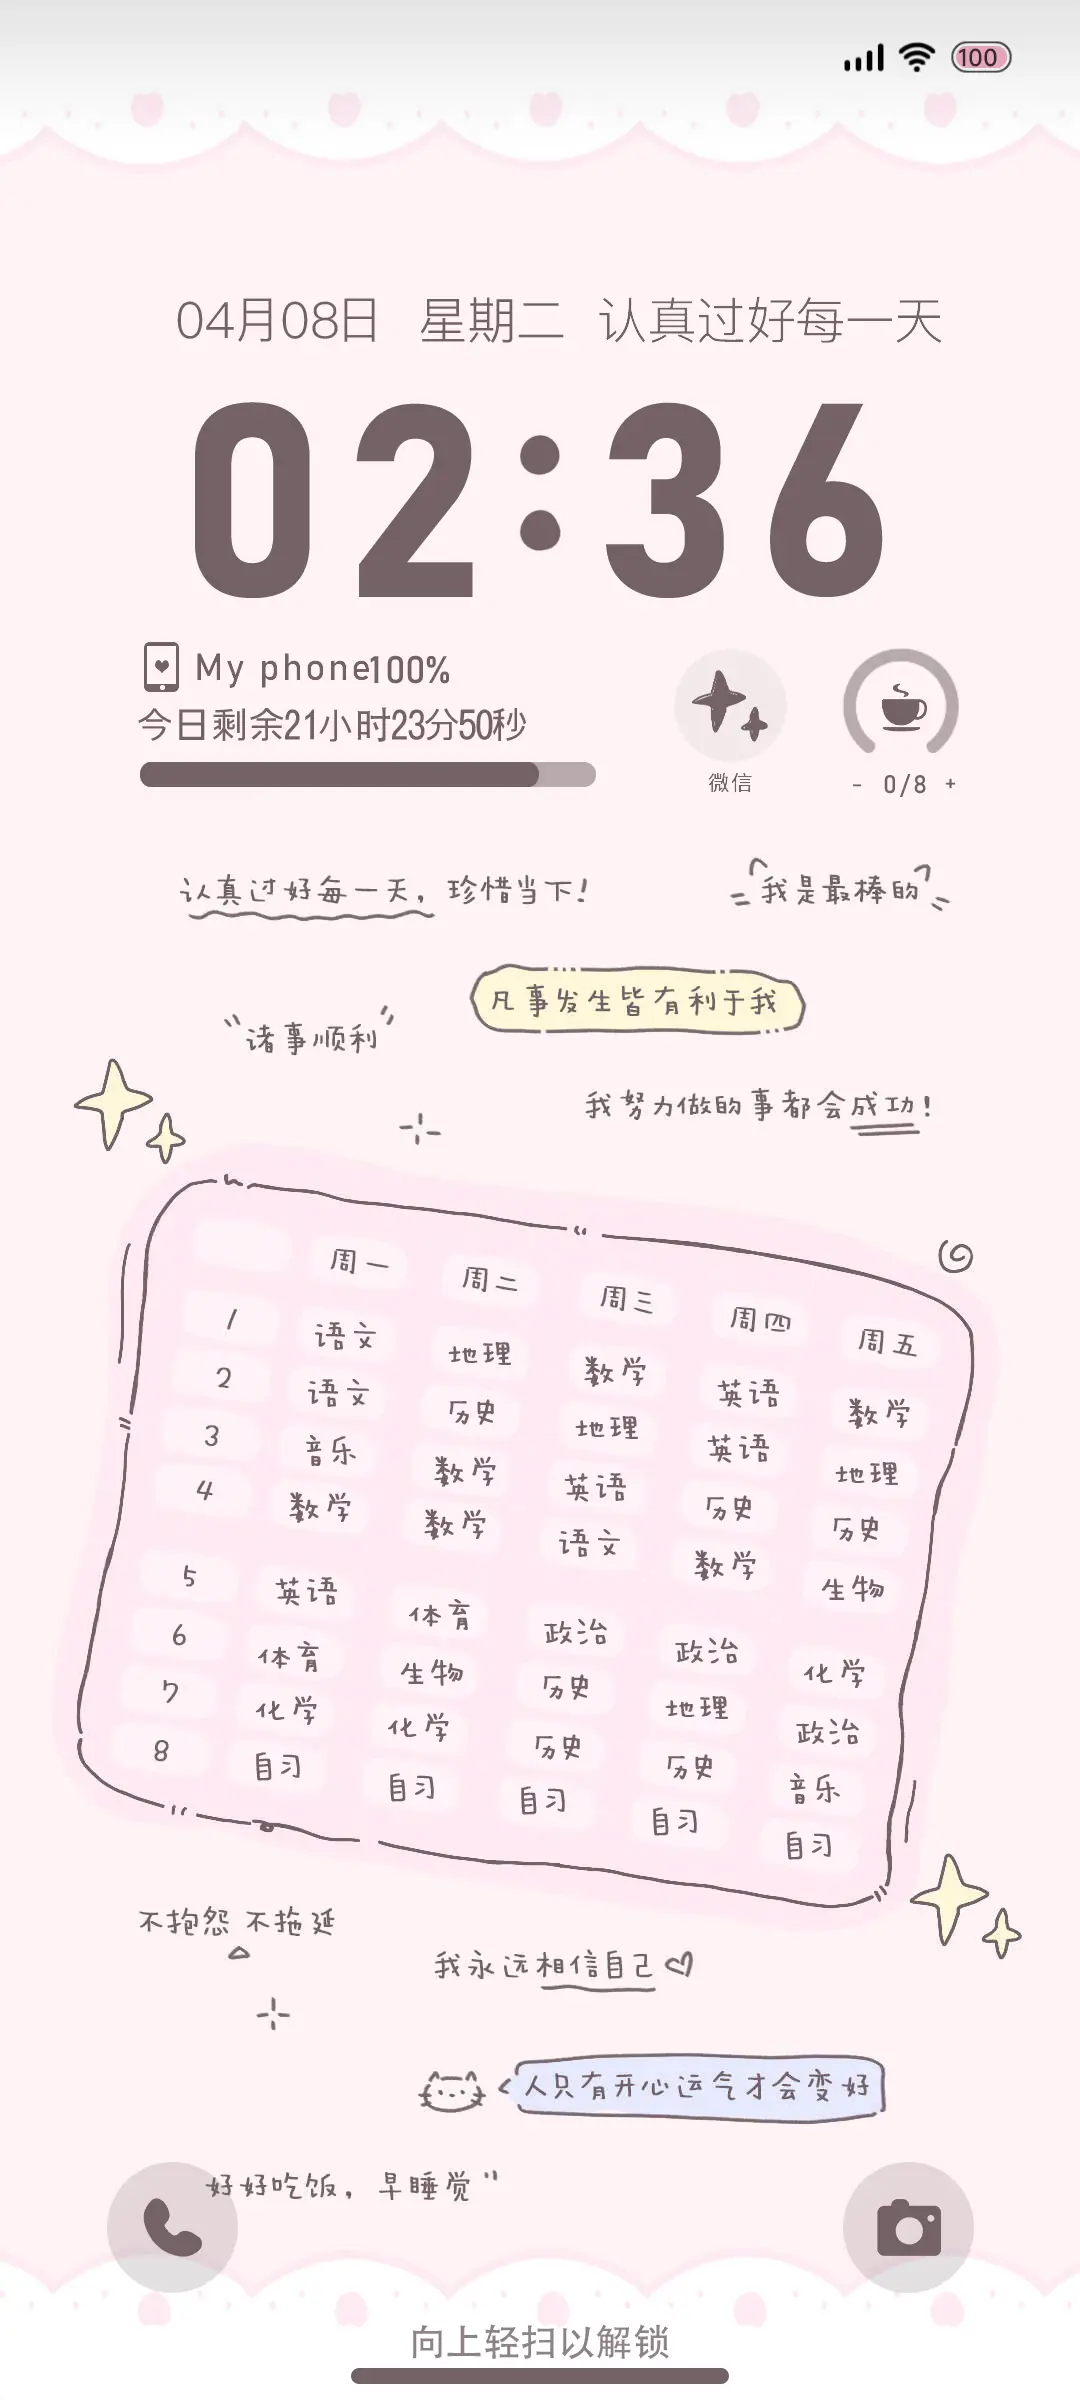 100
04月08日 星期二 认真过好每一天
02:36
My phone100%
今日剩余21小时23分50秒
微信
- 0/8 +
认真过好每一天，珍惜当下！
我是最棒的
凡事发生皆有利于我
诸事顺利
我努力做的事都会成功！
周一 周二 周三 周四 周五
1 语文 地理 数学 英语 数学
2 语文 历史 地理 英语 地理
3 音乐 数学 英语 历史 历史
4 数学 数学 语文 数学 生物
5 英语 体育 政治 政治 化学
6 体育 生物 历史 地理 政治
7 化学 化学 历史 历史 音乐
8 自习 自习 自习 自习 自习
不抱怨 不拖延
我永远相信自己
人只有开心运气才会变好
好好吃饭，早睡觉
向上轻扫以解锁